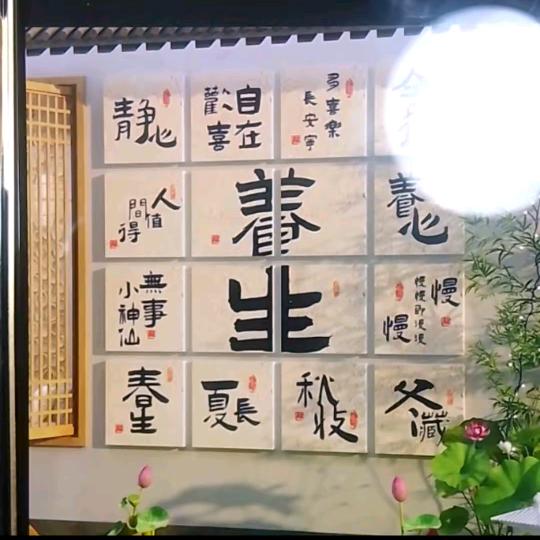 静心
自在
歡喜
多喜樂
長安寧
人間值得
養生
養心
無事
小神仙
慢慢
春生
夏長
秋收
冬藏